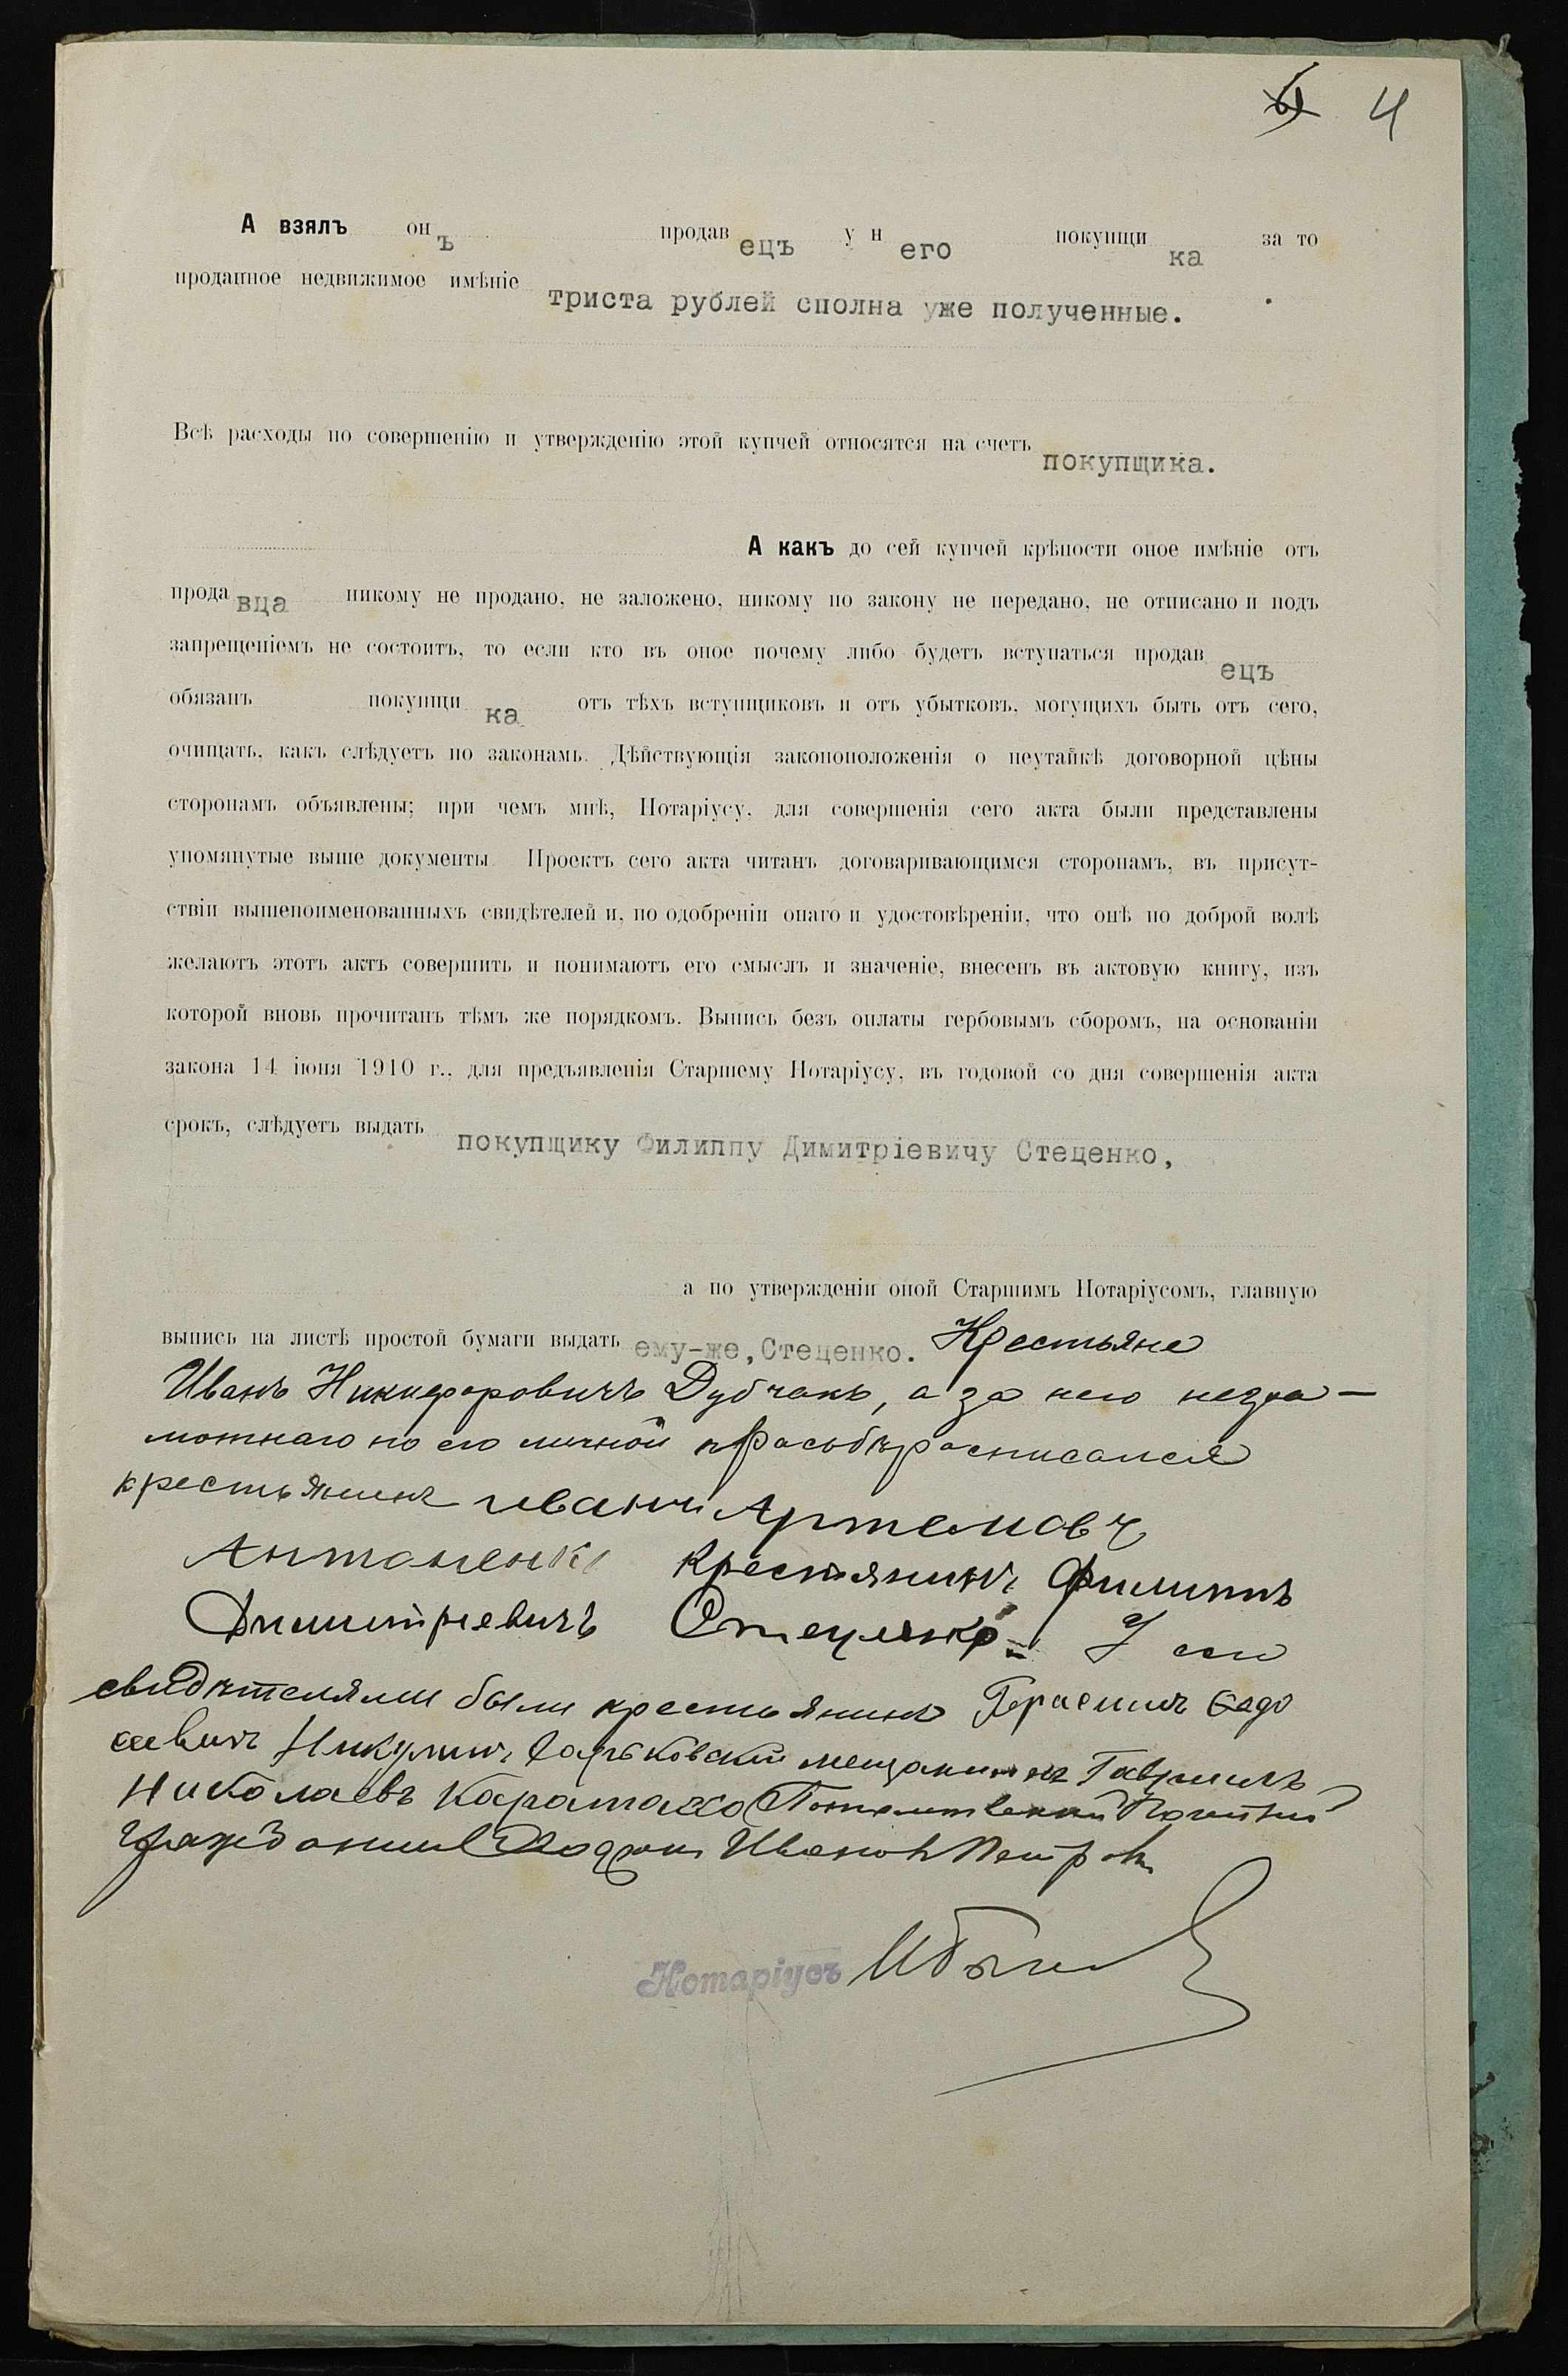 4
А взялъ онъ продавецъ у него покупщика за то
проданное недвижимое имѣніе триста рублей сполна уже полученные.
Всѣ расходы по совершенію и утвержденію этой купчей относятся на счетъ покупщика.
А какъ до сей купчей крѣпости оное имѣніе отъ
продавца никому не продано, не заложено, никому по закону не передано, не отписано и подъ
запрещеніемъ не состоитъ, то если кто въ оное почему либо будетъ вступаться продавецъ
обязанъ покупщика отъ тѣхъ вступщиковъ и отъ убытковъ, могущихъ быть отъ сего,
очищать, какъ слѣдуетъ по законамъ. Дѣйствующія законоположенія о неутайкѣ договорной цѣны
сторонамъ объявлены; при чемъ мнѣ, Нотаріусу, для совершенія сего акта были представлены
упомянутые выше документы Проектъ сего акта читанъ договаривающимся сторонамъ, въ присут-
ствіи вышепоименованныхъ свидѣтелей и, по одобреніи онаго и удостовѣреніи, что онѣ по доброй волѣ
желаютъ этотъ актъ совершить и понимаютъ его смыслъ и значеніе, внесенъ въ актовую книгу, изъ
которой вновь прочитанъ тѣмъ же порядкомъ. Выпись безъ оплаты гербовымъ сборомъ, на основаніи
закона 14 іюня 1910 г., для предъявленія Старшему Нотаріусу, въ годовой со дня совершенія акта
срокъ, слѣдуетъ выдать покупщику Филиппу Димитріевичу Стеценко,
а по утвержденіи оной Старшимъ Нотаріусомъ, главную
выпись на листѣ простой бумаги выдать ему-же, Стеценко. Крестьяне
Иванъ Никифоровичъ Дубчакъ, а за него негра-
мотнаго по его личной прасьбѣ росписался
крестьянинъ иванъ Артемовъ
Антоненко крестянинъ Филиппъ
Димитріевичъ Стеценко. У сей
свидѣтелями были крестьянинъ Герасимъ
Никулинъ, Харьковскій мещанинъ Гавріилъ
Николаевъ Потомственный Почетный
Гражданинъ Иванов Петровъ
Нотаріусъ